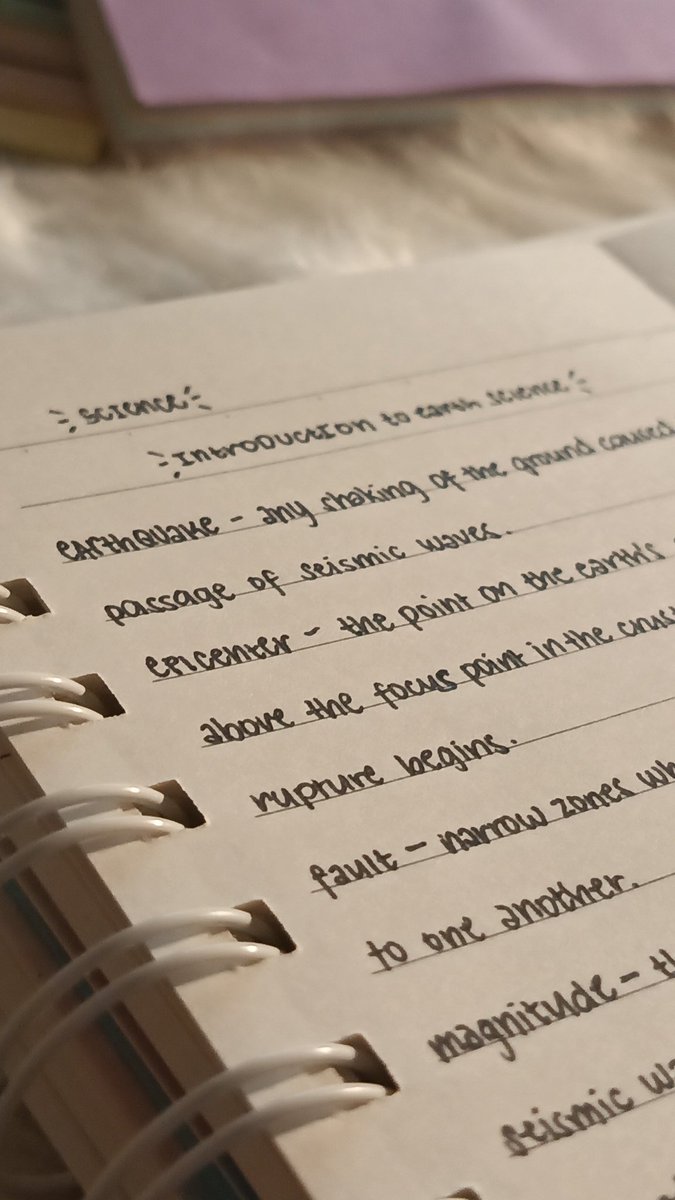 science
Introduction to earth science
earthquake - any shaking of the ground caused
passage of seismic waves.
epicenter - the point on the earth's
above the focus point in the crust
rupture begins.
fault - narrow zones
to one another.
magnitude -
seismic